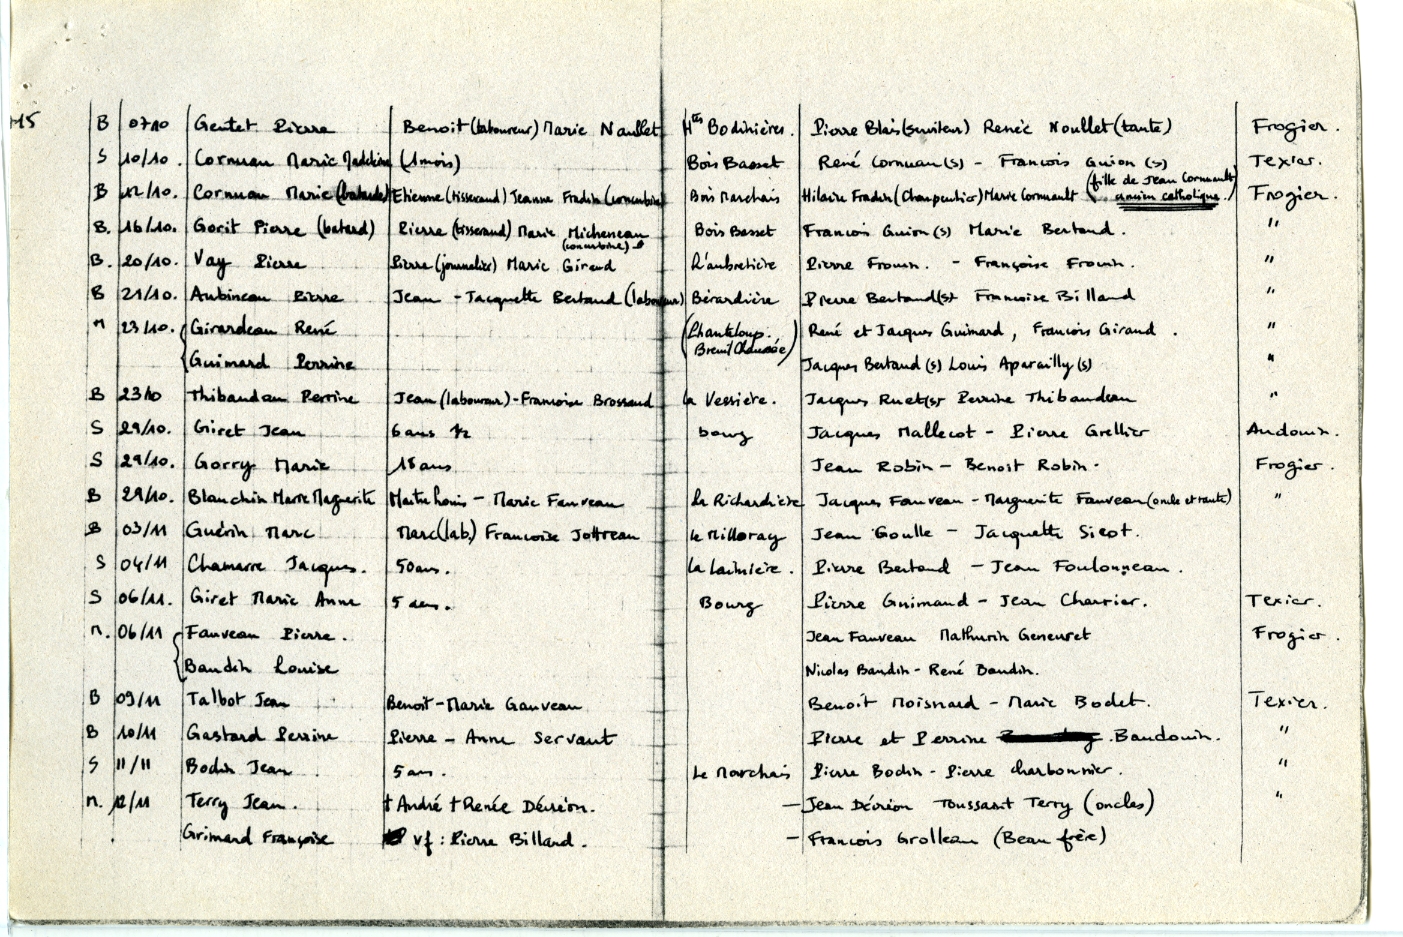 B 07/10 Gentet Pierre Benoit (laboureur) Marie Noullet Htes Bodinières. Pierre Blais (serviteur) Renée Noullet (tante) Frogier.
S 10/10. Cornuau Marie Madeleine (1 mois) Bois Basset René Cornuau (s) - François Guion (s) Texier.
B 12/10. Cornuau Marie (batarde) Etienne (tisserand) Jeanne Fradin (concubine) Bois Marchais Hilaire Fradin (Charpentier) Marie Cornuault (fille de Jean Cornuault ancien catholique.) Frogier.
B. 16/10. Gorit Pierre (batard) Pierre (tisserand) Marie Micheneau (concubine) Bois Basset François Guion (s) Marie Bertaud. "
B. 20/10. Vay Pierre Pierre (journalier) Marie Giraud L'aubretière Pierre Frouin. - Françoise Frouin. "
B 21/10. Aubineau Pierre Jean - Jacquette Bertaud (laboureur) Bérardière Pierre Bertaud (s) Françoise Billaud "
M 23/10. Girardeau René (Chanteloup. René et Jacques Guimard, François Giraud. "
Guimard Perrine Breuil Chaussée) Jacques Bertaud (s) Louis Aparailly (s) "
B 23/10 Thibaudeau Perrine Jean (laboureur) - Françoise Brossaud la Vessière. Jacques Ruet (s) Perrine Thibaudeau "
S 29/10. Giret Jean 6 ans 1/2 bourg Jacques Mallecot - Pierre Grellier Audouin.
S 29/10. Gorry Marie 18 ans Jean Robin - Benoit Robin. Frogier.
B 29/10. Blanchin Marie Marguerite Maitre Louis - Marie Fauveau la Richardière Jacques Fauveau - Marguerite Fauveau (oncle et tante) "
B 03/11 Guérin Marc Marc (lab.) Françoise Jottreau le Milloray Jean Goulle - Jacquette Sicot.
S 04/11 Chamarre Jacques. 50 ans. la Pierre Bertaud - Jean Foulonneau.
S 06/11. Giret Marie Anne 5 ans. Bourg Pierre Guimaud - Jean Charrier. Texier.
M. 06/11 Fauveau Pierre. Jean Fauveau Mathurin Geneuret Frogier.
Baudin Louise Nicolas Baudin - René Baudin.
B 09/11 Talbot Jean Benoit - Marie Gauveau Benoît Moisnard - Marie Bodet. Texier.
B 10/11 Gastard Perrine Pierre - Anne Servant Pierre et Perrine Baudouin. "
S 11/11 Bodin Jean 5 ans. Le Marchais Pierre Bodin - Pierre Charbonnier. "
M. 12/11 Terry Jean. † André † Renée Décréon. - Jean Décréon Toussaint Terry (oncles) "
Grimard Françoise vf : Pierre Billard. - François Grolleau (Beau frère)